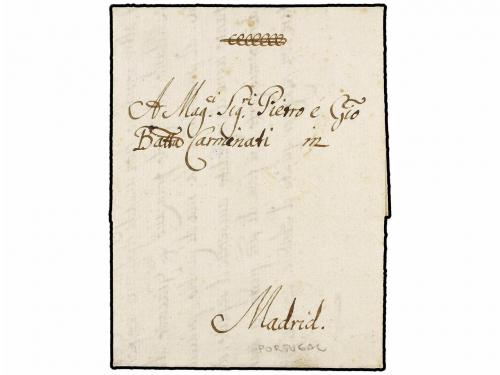 A Mag.ci Sig.ri Pietro e Gio
Batta Carminati in
Madrid.
PORTUGAL